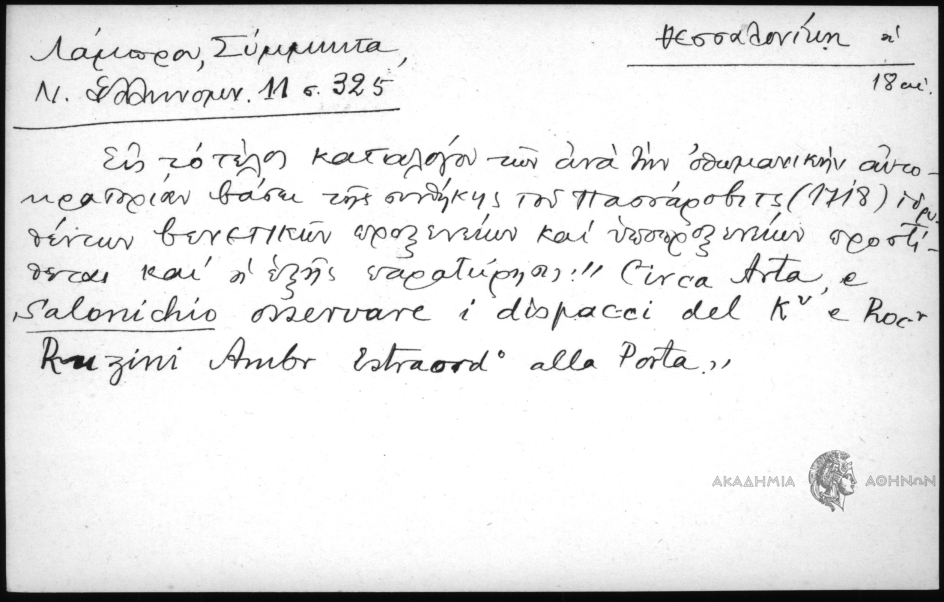 Λάμπρου, Σύμμικτα,
Ν. Ἑλληνομν. 11 σ. 325
Θεσσαλονίκη
18 αἰ.
Εἰς τό τέλος καταλόγου τῶν ἀνά τήν ὀθωμανικήν αὐτο-
κρατορίαν βάσει τῆς συνθήκης τοῦ Πασσάροβιτς (1718) ἱδρυ-
θέντων βενετικῶν προξενείων καί ὑποπροξενείων προστί-
θεται καί ἡ ἑξῆς παρατήρησις: "Circa Arta, e
Salonichio osservare i dispacci del Kʳ e Rocʳ
Ruzini Ambr Estraordᵒ alla Porta."
ΑΚΑΔΗΜΙΑ ΑΘΗΝΩΝ